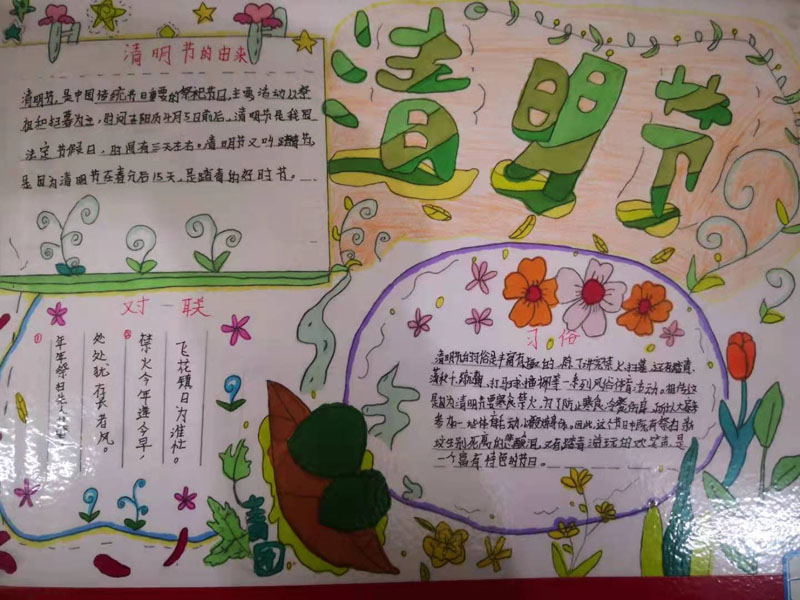 清明节
清明节的由来
清明节,是中国传统节日重要的祭祀节日,主要活动以祭
祖和扫墓为主,时间在阳历4月5日前后。清明节是我国
法定节假日,时间有三天左右。清明节又叫踏青节,
是因为清明节在春分后15天,是踏青的好时节。
对联
①
年年祭扫先人墓
处处犹存长者风。
②
禁火今年逢今早,
飞花镇日为谁壮。
习俗
清明节的习俗是丰富有趣的,除了讲究禁火、扫墓,还有踏青、
荡秋千、蹴鞠、打马球、插柳等一系列风俗体育活动。相传这
是因为清明节要寒食禁火,为了防止寒食冷餐伤身,所以大家来
参加一些体育活动,以锻炼身体。因此,这个节日中既有祭扫新
坟生别死离的悲酸泪,又有踏青游玩的欢笑声,是
一个富有特色的节日。
青团